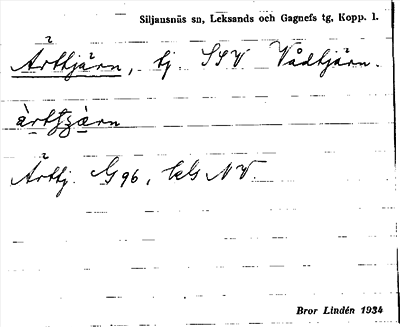 Siljansnäs sn, Leksands och Gagnefs tg, Kopp. l.
Ärttjärn, tj. SSV Vådtjärn.
Ärttj. G96, kls NV.
Bror Lindén 1934